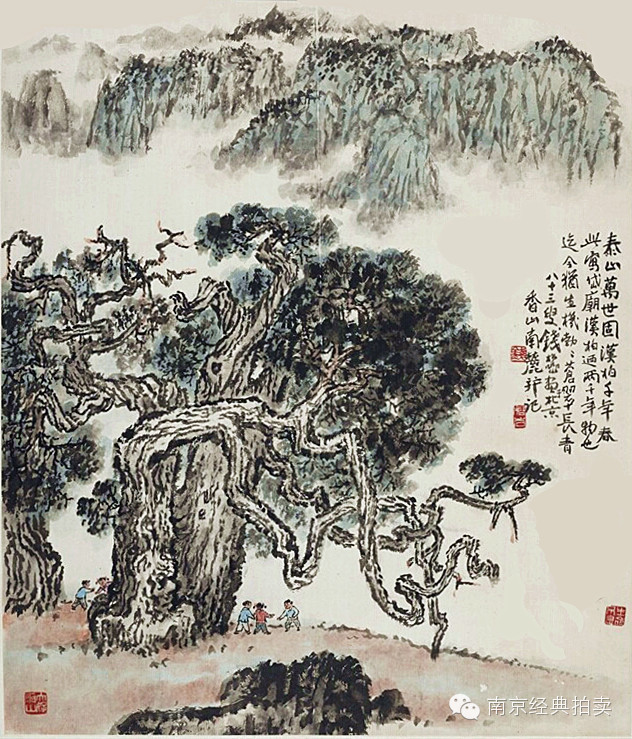 泰山萬世固漢柏千年春
此寫岱廟漢柏迺兩千年物也
迄今猶生機勃々蒼翠長青
八十三叟錢松嵒畫於北京
香山南麓并記
南京经典拍卖